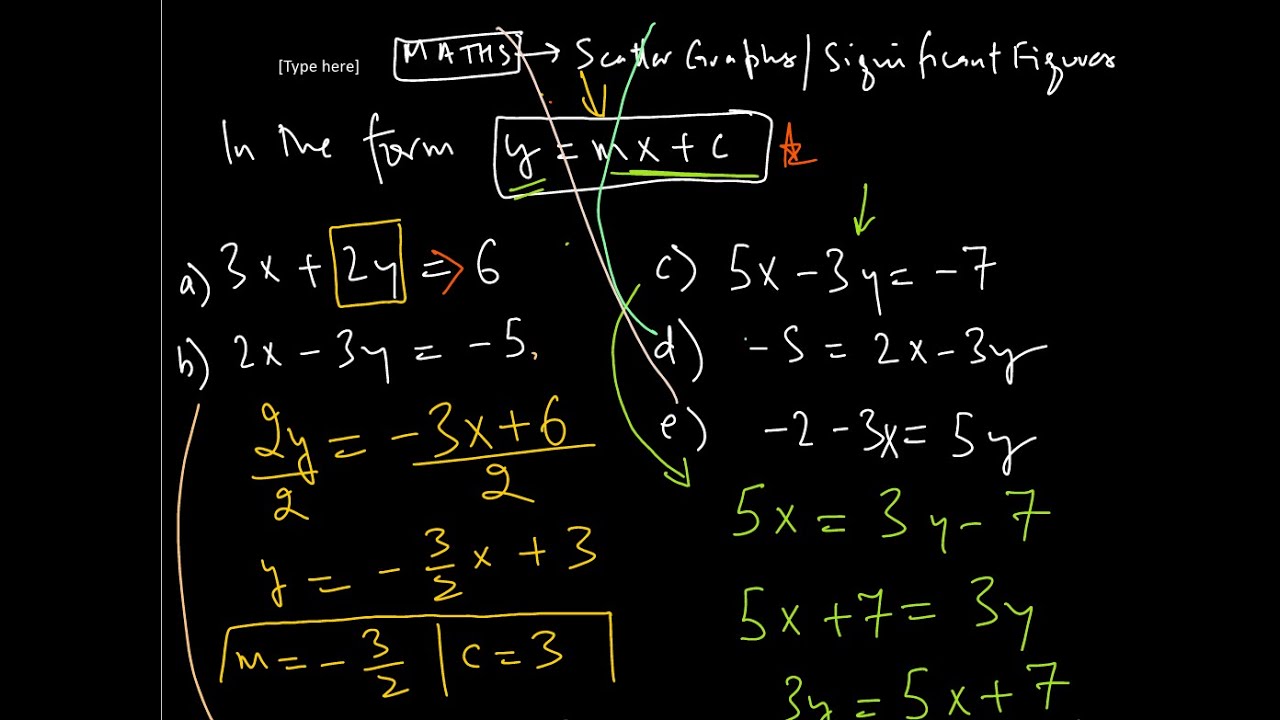 [Type here] MATHS → Scatter Graphs / Significant Figures
In the form y = mx + c
a) 3x + 2y = 6
b) 2x - 3y = -5.
2y/2 = -3x+6/2
y = -3/2 x + 3
m = -3/2 | c = 3
c) 5x - 3y = -7
d) -5 = 2x - 3y
e) -2 - 3x = 5y
5x = 3y - 7
5x + 7 = 3y
3y = 5x + 7